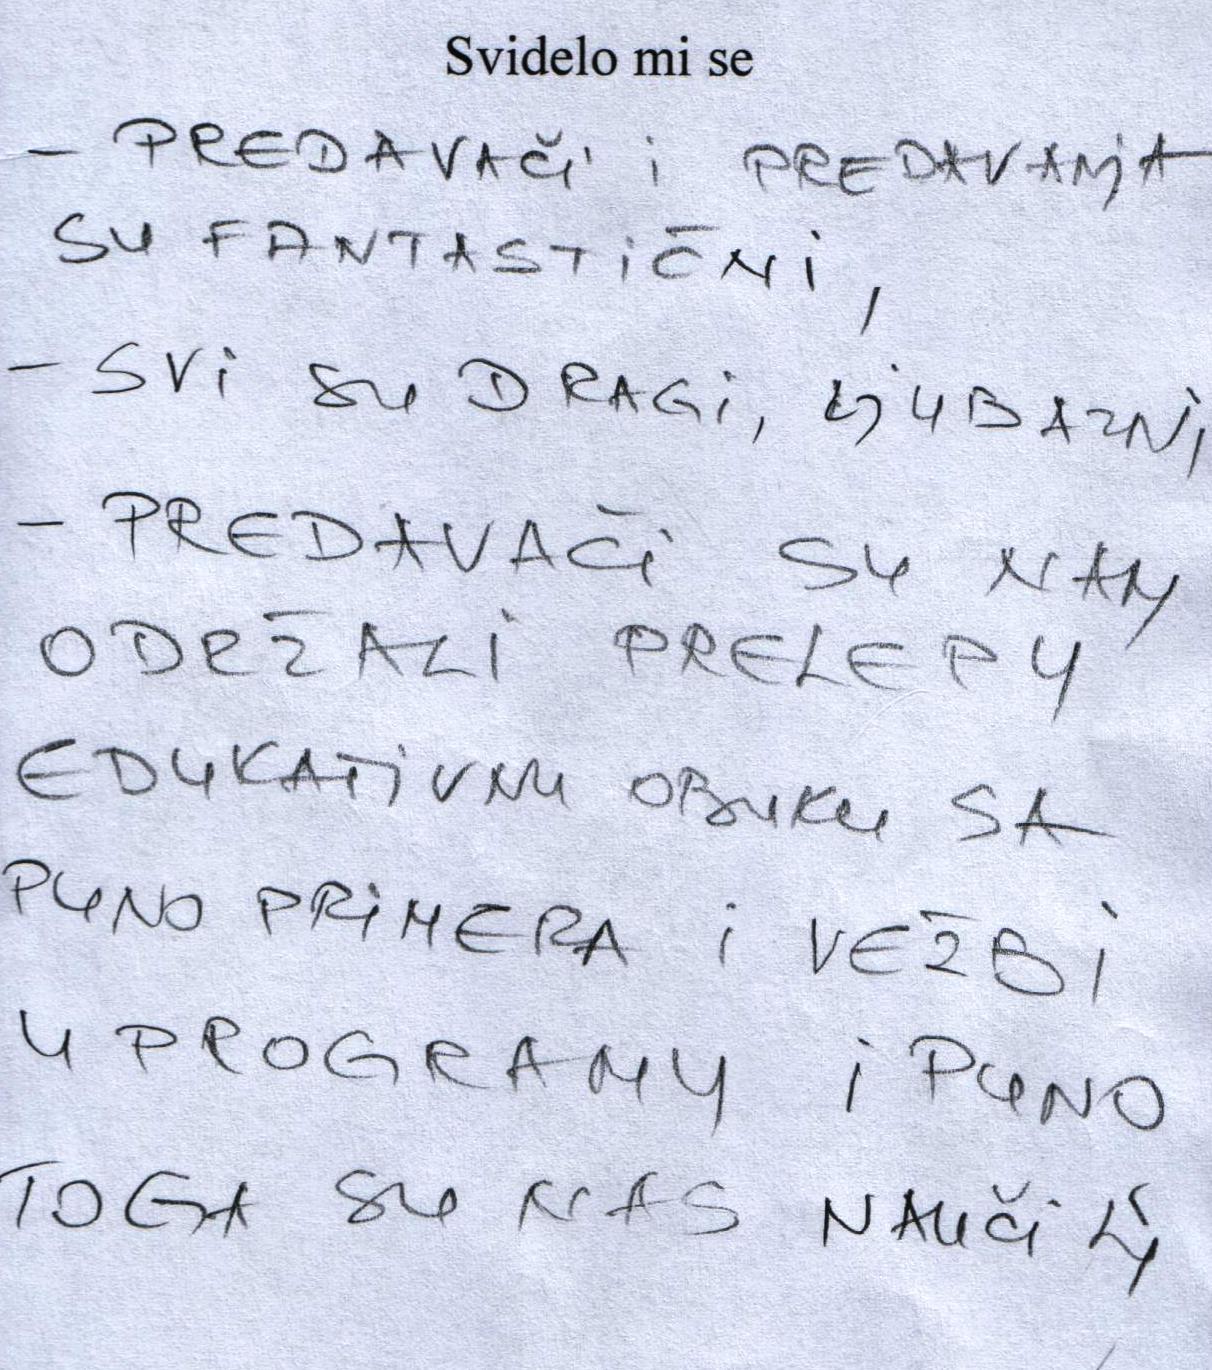 Svidelo mi se
- PREDAVAČi i PREDAVANjA
SU FANTASTiČNi,
- SVi SU DRAGi, LjUBAZNi,
- PREDAVAČi SU NAM
ODRŽALi PRELEPU
EDUKATiVNU OBUKU SA
PUNO PRiMERA i VEŽBi
U PROGRAMU i PUNO
TOGA SU NAS NAUČiLi